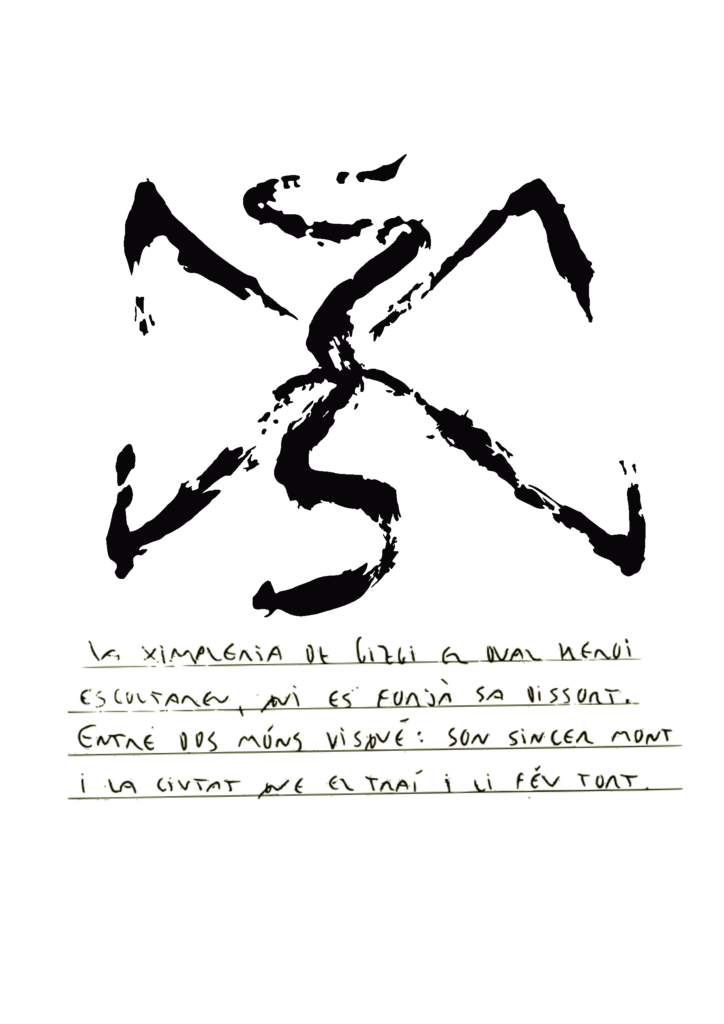 LA XIMPLERIA DE GIZGI EL DUAL HEROI
ESCOLTAREU, QUI ES FORJÀ SA DISSORT.
ENTRE DOS MÓNS VISQUÉ: SON SINCER MONT
I LA CIUTAT QUE EL TRAÍ I LI FÉU TORT.